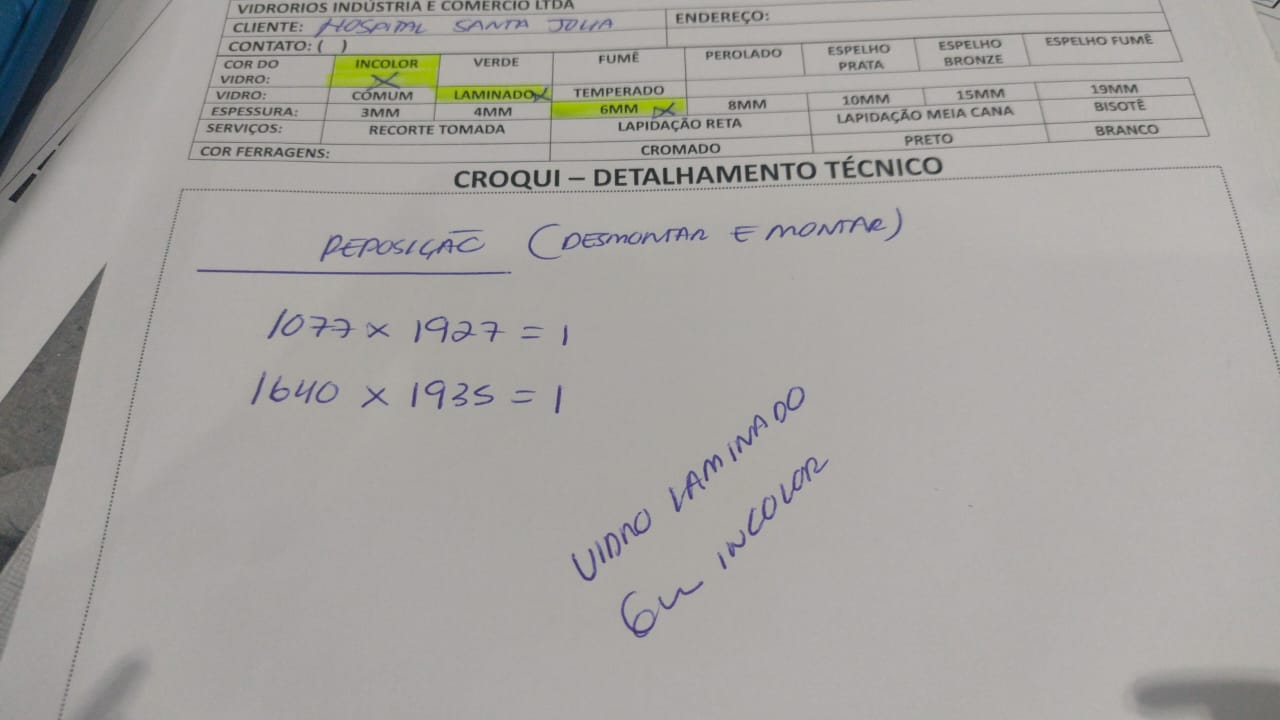 VIDRORIOS INDÚSTRIA E COMÉRCIO LTDA
CLIENTE: HOSPITAL SANTA JULIA ENDEREÇO:
CONTATO: ( )
COR DO VIDRO: INCOLOR X VERDE FUMÊ PEROLADO ESPELHO PRATA ESPELHO BRONZE ESPELHO FUMÊ
VIDRO: COMUM LAMINADO X TEMPERADO
ESPESSURA: 3MM 4MM 6MM X 8MM 10MM 15MM 19MM
SERVIÇOS: RECORTE TOMADA LAPIDAÇÃO RETA LAPIDAÇÃO MEIA CANA BISOTÊ
COR FERRAGENS: CROMADO PRETO BRANCO
CROQUI – DETALHAMENTO TÉCNICO
REPOSIÇÃO (DESMONTAR E MONTAR)
1077 x 1927 = 1
1640 x 1935 = 1
VIDRO LAMINADO
6m INCOLOR